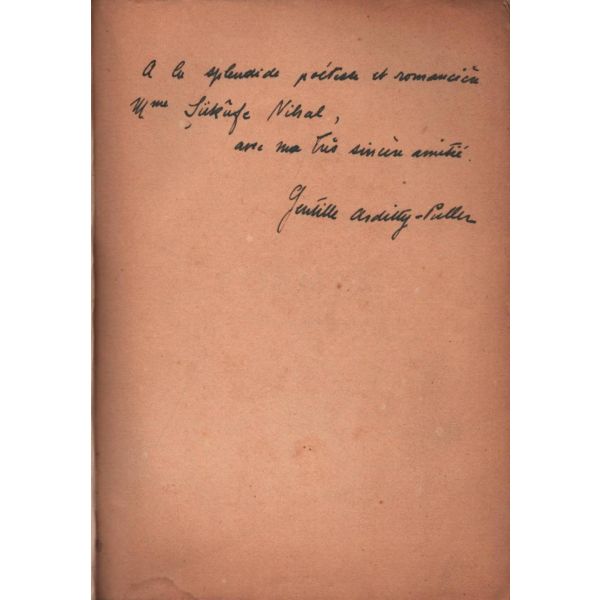 A la splendide poétesse et romancière
Mme Şükûfe Nihal,
avec ma très sincère amitié.
Gentille Arditty-Puller